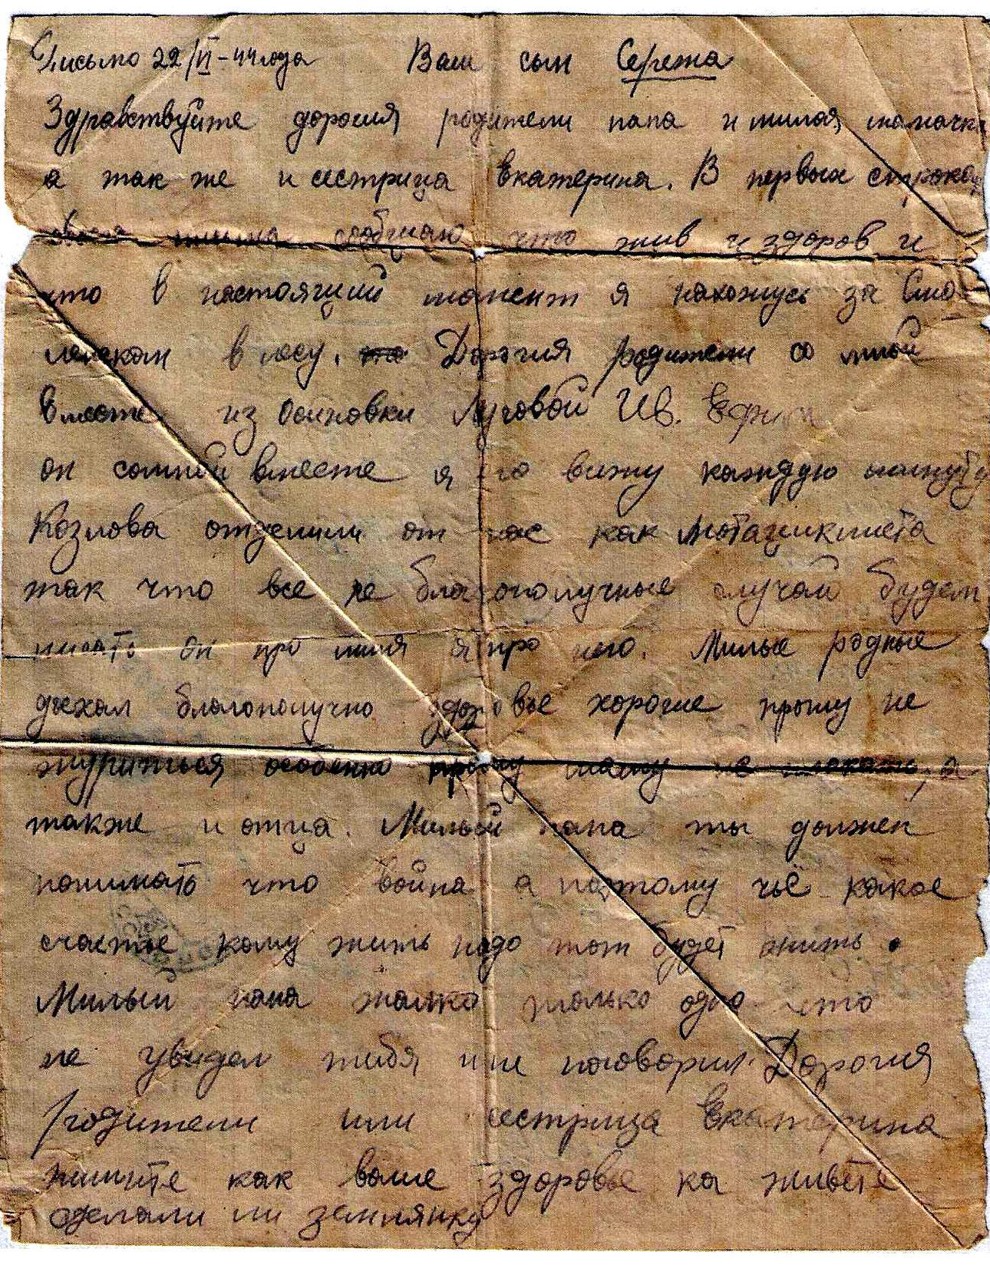 Письмо 22/VI-44 года Ваш сын Сережа
Здравствуйте дорогия родители папа и милая мамочка
а так же и сестрица Екатерина. В первых строках
своего писма сообщаю что жив и здоров и
что в настоящий момент я нахожусь за Смо
ленском в лесу. Дорогия родители со мной
вместе из Осиновки Луговой Ив. Ефим
он сомной вместе я его вижу каждую минуту
Козлова отделили от нас как мотациклиста
так что все не благополучные случаи будем
писать он про миня я про него. Милые родные
доехал благополучно здоровье хорошее прошу не
журиться особенно прошу маму не плакать, а
также и отца. Милый папа ты должен
понимать что война а поэтому чьё какое
счастье кому жить надо тот будет жить.
Милый папа жалко только одно что
не увидел тибя и не поговорил. Дорогия
родители или сестрица Екатерина
пишите как ваше здоровье ка живёте
сделали ли землянку